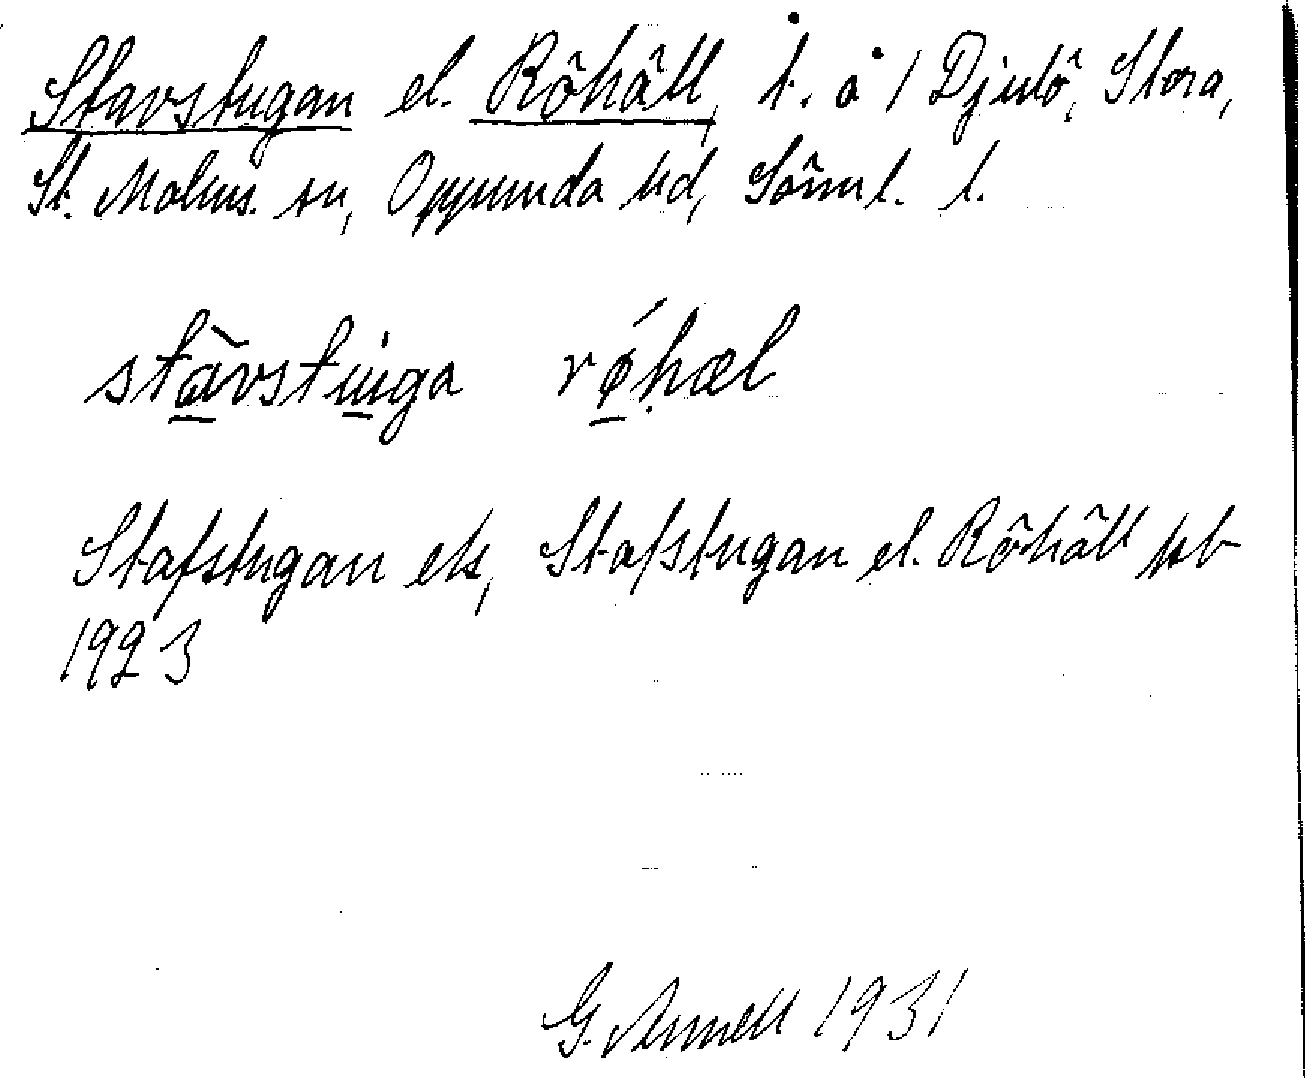 Stavstugan el. Röhäll, t. å 1 Djulö, Stora,
St. Malms. sn, Oppunda hd, Sörml. l.
stàvstuga rǿhæl
Stafstugan ek, Stafstugan el. Röhäll jpb
1923
G. Annell 1931